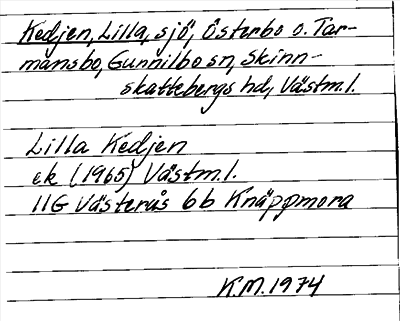 Kedjen, Lilla, sjö, Österbo o. Tar-
mansbo, Gunnilbo sn, Skinn-
skattebergs hd, Västm.l.
Lilla Kedjen
ek (1965) Västm.l.
11G Västerås 6b Knäppmora
K.M. 1974